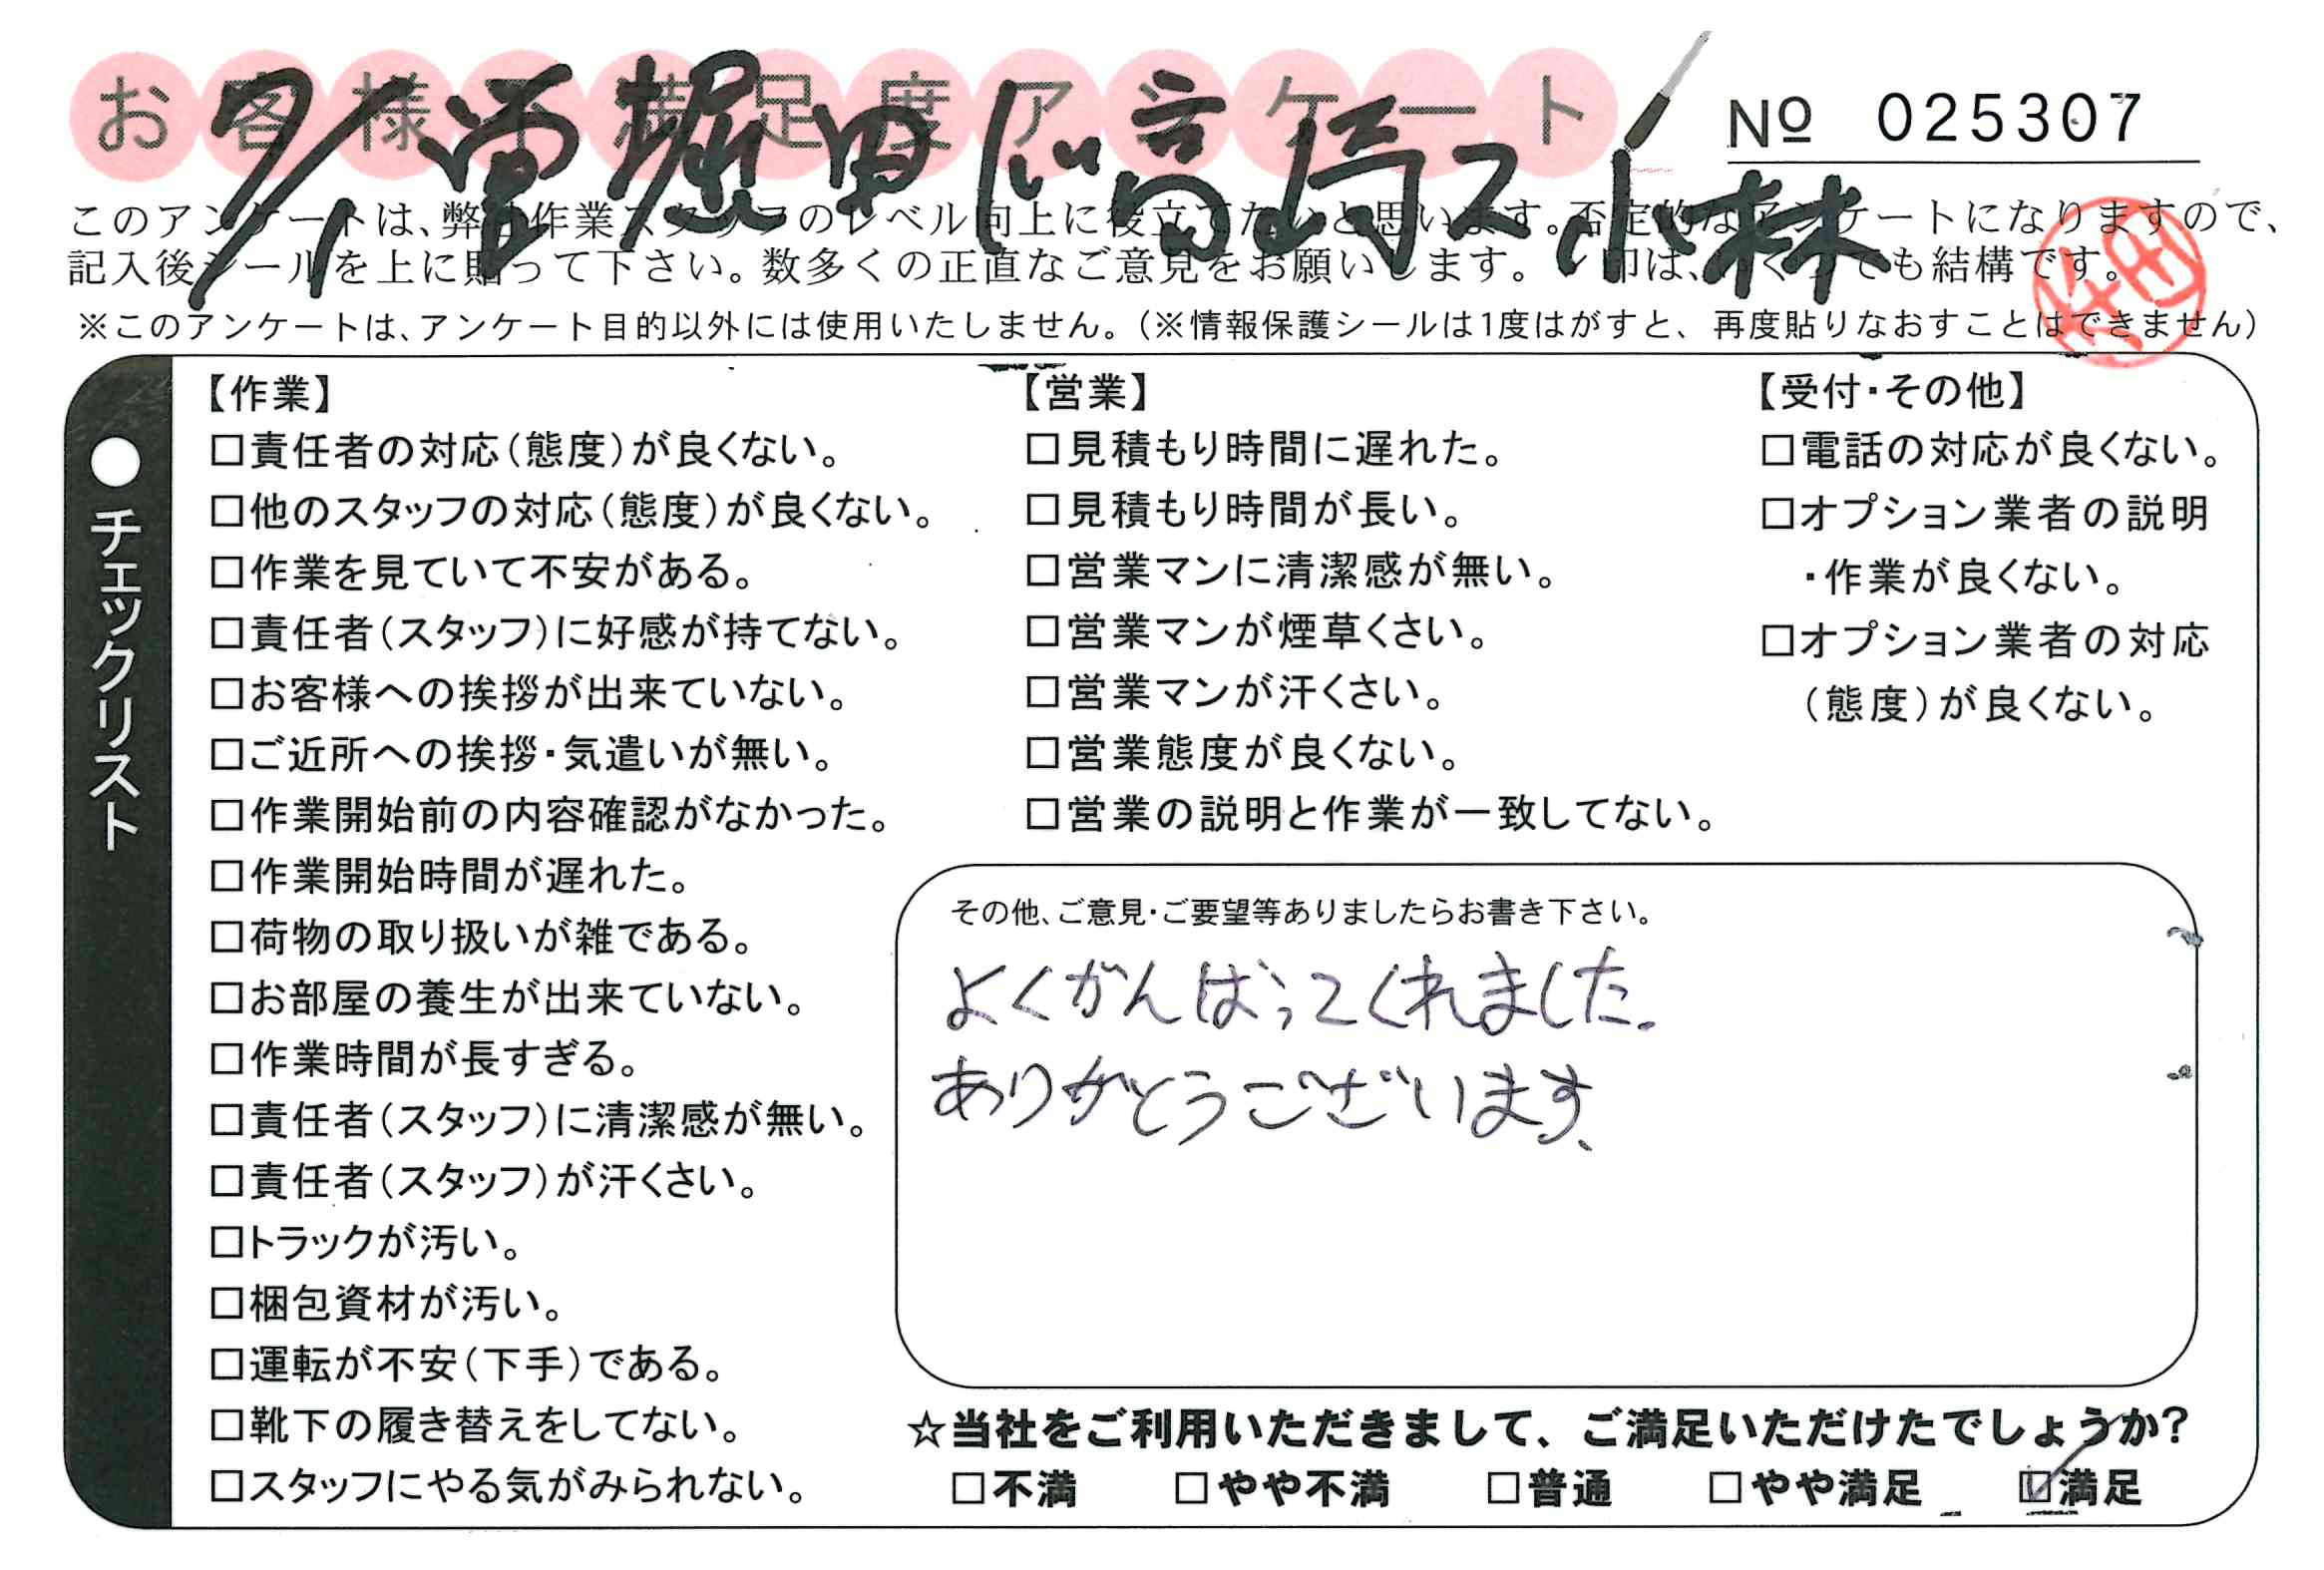 お客様不満足度アンケート
№ 025307
7/1 営堀田 ド高崎 ス小林
このアンケートは、弊社作業スタッフのレベル向上に役立てたいと思います。否定的なアンケートになりますので、
記入後シールを上に貼って下さい。数多くの正直なご意見をお願いします。 印は、いくつでも結構です。
※このアンケートは、アンケート目的以外には使用いたしません。(※情報保護シールは1度はがすと、再度貼りなおすことはできません)
●チェックリスト
【作業】
□責任者の対応(態度)が良くない。
□他のスタッフの対応(態度)が良くない。
□作業を見ていて不安がある。
□責任者(スタッフ)に好感が持てない。
□お客様への挨拶が出来ていない。
□ご近所への挨拶・気遣いが無い。
□作業開始前の内容確認がなかった。
□作業開始時間が遅れた。
□荷物の取り扱いが雑である。
□お部屋の養生が出来ていない。
□作業時間が長すぎる。
□責任者(スタッフ)に清潔感が無い。
□責任者(スタッフ)が汗くさい。
□トラックが汚い。
□梱包資材が汚い。
□運転が不安(下手)である。
□靴下の履き替えをしてない。
□スタッフにやる気がみられない。
【営業】
□見積もり時間に遅れた。
□見積もり時間が長い。
□営業マンに清潔感が無い。
□営業マンが煙草くさい。
□営業マンが汗くさい。
□営業態度が良くない。
□営業の説明と作業が一致してない。
【受付・その他】
□電話の対応が良くない。
□オプション業者の説明
・作業が良くない。
□オプション業者の対応
(態度)が良くない。
その他、ご意見・ご要望等ありましたらお書き下さい。
よくがんばってくれました。
ありがとうございます、
☆当社をご利用いただきまして、ご満足いただけたでしょうか?
□不満 □やや不満 □普通 □やや満足 ☑満足